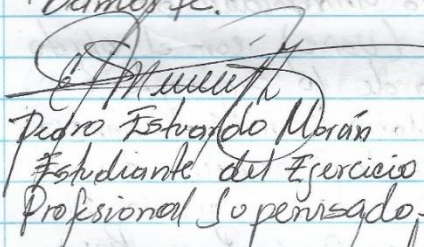 Damos fé.
Pedro Estuardo Morán
Estudiante del Ejercicio
Profesional Supervisado.